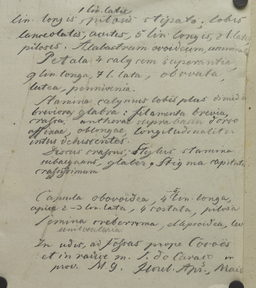 1 lin. latis
lin. longis, pilosis stipato; lobis
lanceolatis, acutis, 5 lin. longis, 2 latis,
pilosis. Alabastrum ovoideum,
Petala 4 calycem superantia,
9 lin. longa, 7 l. lata, obovata,
lutea, pennivenia.
Stamina calycinus lobis plus dimidio
breviora, glabra; filamenta brevia,
crassa, antherae supra basin dorso
affixae, oblongae, longitudinaliter
intus dehiscentes.
crassus; Stylus stamina
subaequans, glaber, Stigma capitata
crassissimum
Capsula obovoidea, 4 lin. longa,
apice 2-3 lin. lata, 4 costata, pilosa
Semina creberrima, elipsoidea,
In udis, ad fossas prope
et in m. S. do Caraio
prov. M G. Flor. Apr., Maio